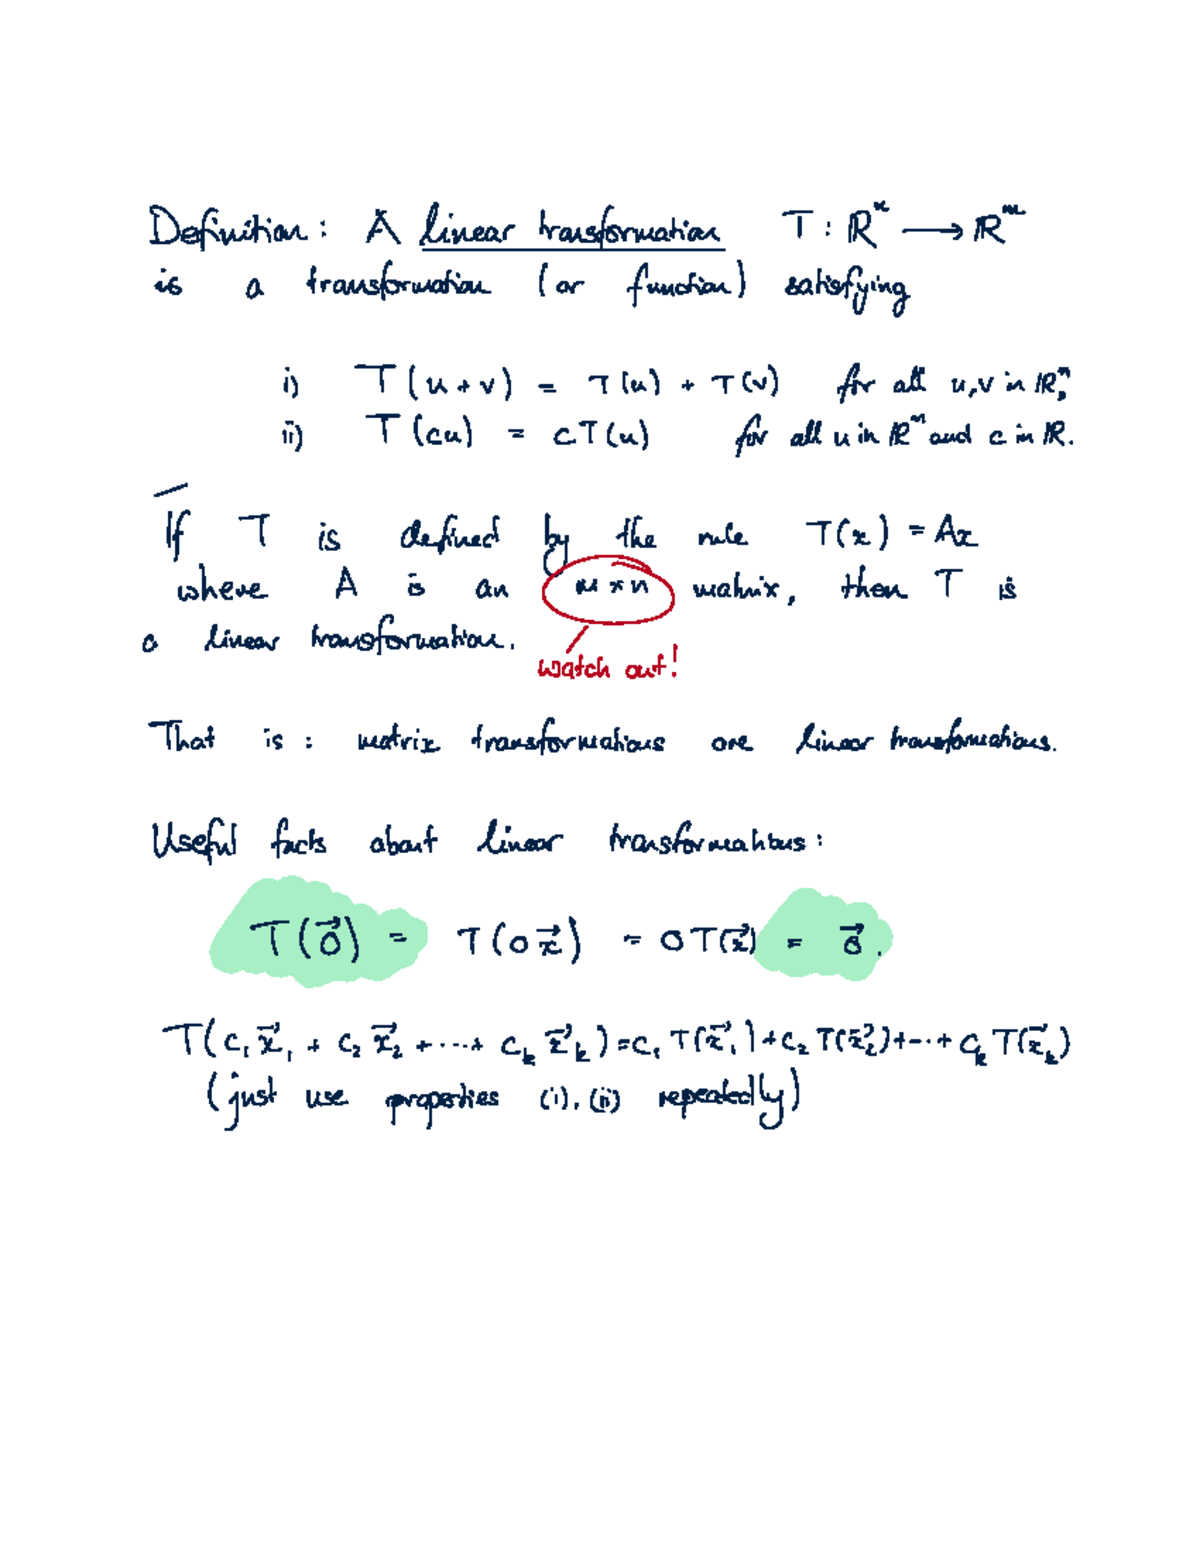 Definition: A linear transformation T : ℝⁿ ⟶ ℝᵐ
is a transformation (or function) satisfying
i) T(u+v) = T(u) + T(v) for all u,v in ℝⁿ,
ii) T(cu) = cT(u) for all u in ℝⁿ and c in ℝ.
If T is defined by the rule T(x) = Ax
where A is an m×n matrix, then T is
a linear transformation.
watch out!
That is: matrix transformations are linear transformations.
Useful facts about linear transformations:
T(0⃗) = T(0x⃗) = 0T(x⃗) = 0⃗.
T(c₁x⃗₁ + c₂x⃗₂ + ··· + cₖx⃗ₖ) = c₁T(x⃗₁) + c₂T(x⃗₂) + ··· + cₖT(x⃗ₖ)
(just use properties (i), (ii) repeatedly)